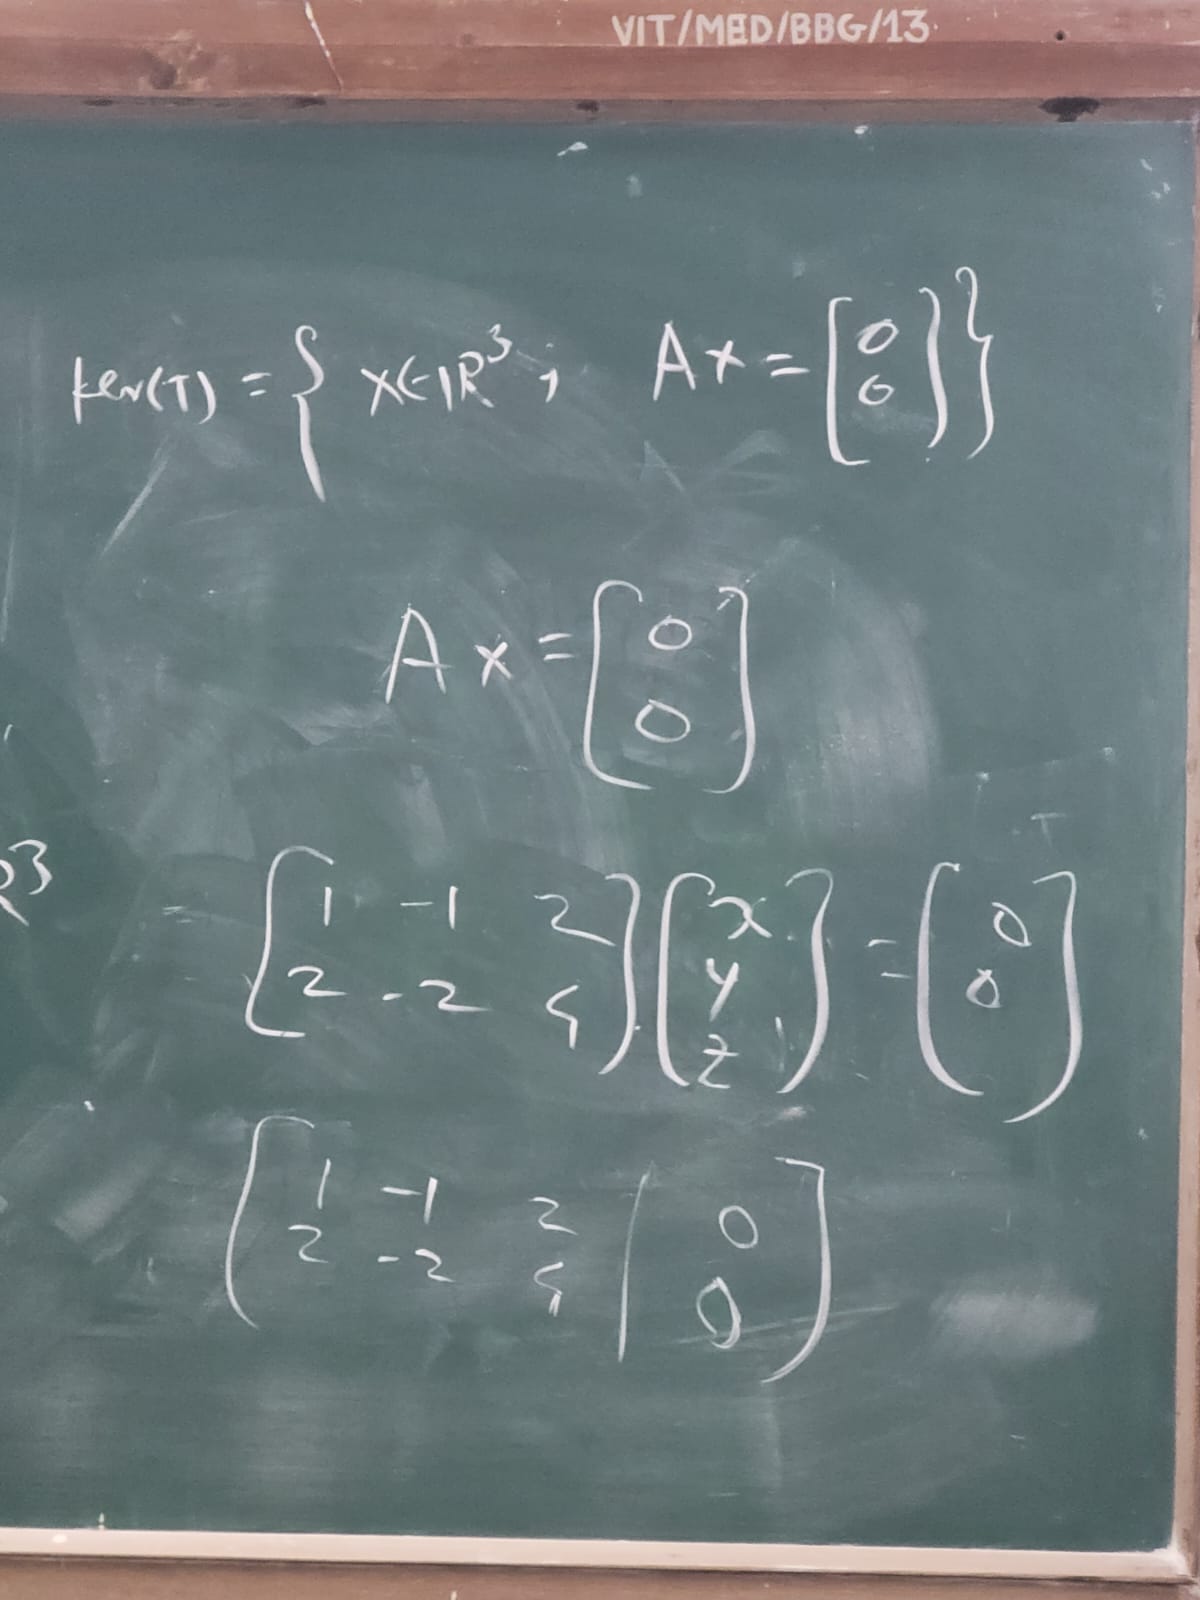 VIT/MED/BBG/13
ker(T) = { x∈ℝ³, Ax = [0 0] }
Ax = [0 0]
ℝ³ = [1 -1 2
2 -2 4] [x y z] = [0 0]
[1 -1 2 | 0
2 -2 4 | 0]